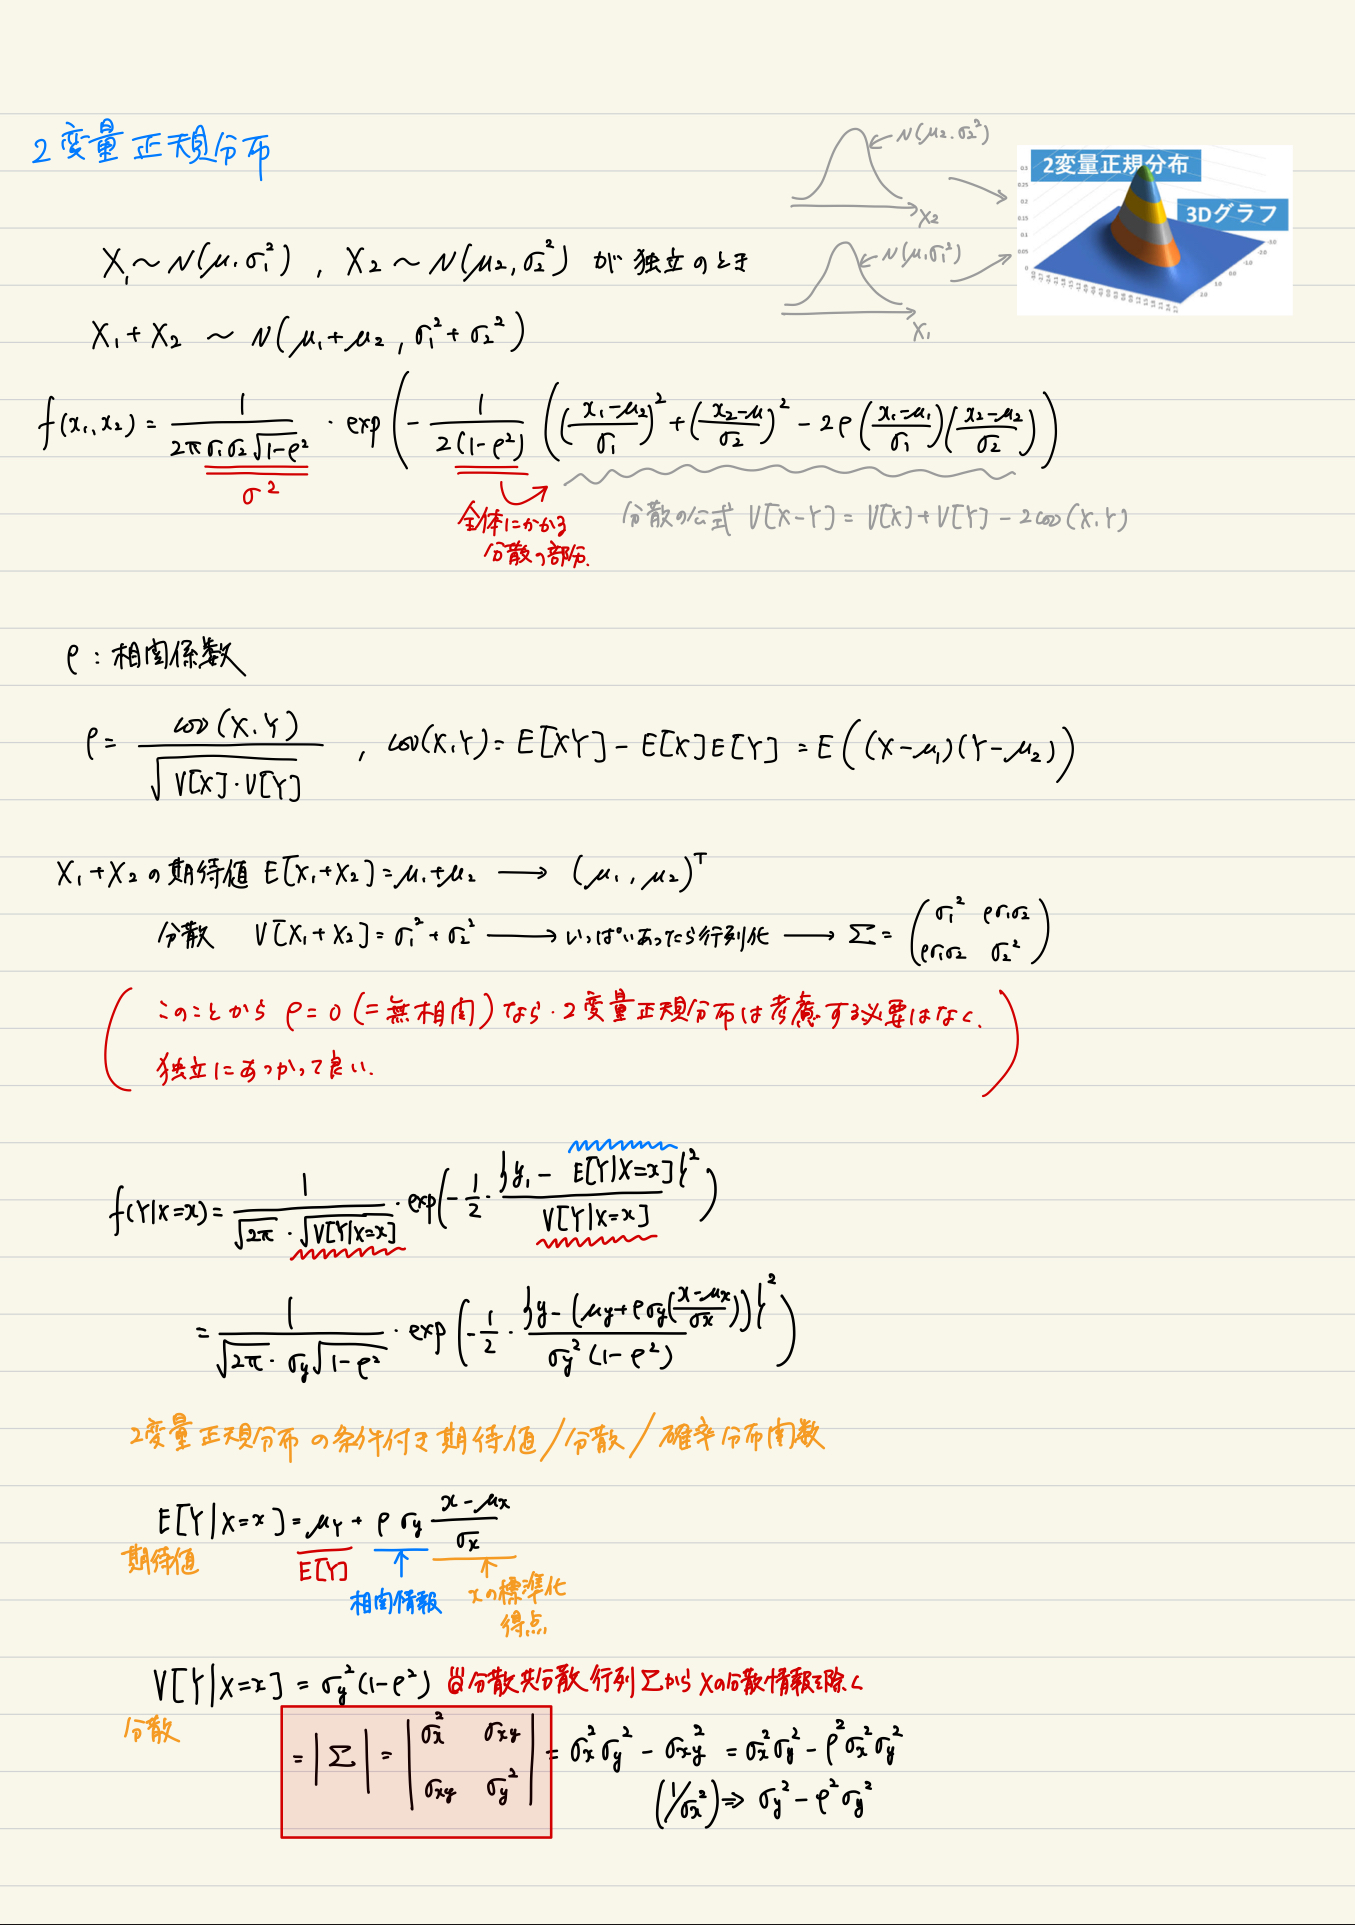 2変量正規分布
N(μ2.σ2²)
X2
N(μ1σ1²)
X1
2変量正規分布
3Dグラフ
X1 ~ N(μ.σ1²) , X2 ~ N(μ2,σ2²) が 独立のとき
X1 + X2 ~ N(μ1+μ2 , σ1²+σ2²)
f(x1,x2) = 1/(2πσ1σ2√(1-ρ²)) · exp(-1/(2(1-ρ²)) (((x1-μ2)/σ1)² + ((x2-μ)/σ2)² - 2ρ((x1-μ1)/σ1)((x2-μ2)/σ2)))
σ²
全体にかかる
分散の部分.
分散の公式 V[X-Y] = V[X]+V[Y] - 2cov(X,Y)
ρ : 相関係数
ρ = cov(X.Y)/√(V[X]·V[Y]) , cov(X.Y) = E[XY] - E[X]E[Y] = E((X-μ1)(Y-μ2))
X1+X2の期待値 E[X1+X2]=μ1+μ2 → (μ1,μ2)ᵀ
分散 V[X1+X2]=σ1²+σ2² → いっぱいあったら行列化 → Σ = (σ1² ρσ1σ2
ρσ1σ2 σ2²)
このことから ρ=0 (=無相関) なら.2変量正規分布は考慮する必要はなく.
独立にあつかって良い.
f(Y|X=x) = 1/(√2π·√V[Y|X=x]) · exp(-1/2 · {y1 - E[Y|X=x]}²/V[Y|X=x])
= 1/(√2π·σy√(1-ρ²)) · exp(-1/2 · {y-(μy+ρσy((x-μx)/σx))}²/(σy²(1-ρ²)))
2変量正規分布の条件付き期待値/分散/確率分布関数
E[Y|X=x] = μY + ρσy (x-μx)/σx
期待値
E[Y]
相関情報
xの標準化
得点
V[Y|X=x] = σy²(1-ρ²) 分散共分散行列ΣからXの分散情報を除く
分散
= |Σ| = |σx² σxy
σxy σy²| = σx²σy² - σxy² = σx²σy² - ρ²σx²σy²
(1/σx²) ⇒ σy² - ρ²σy²